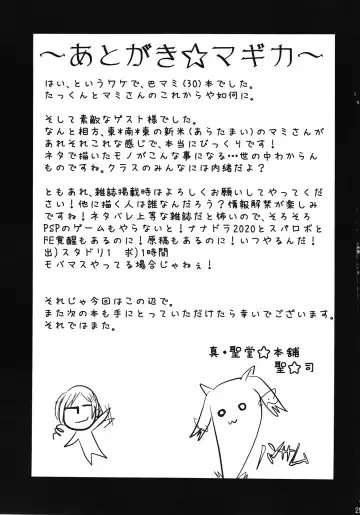 ～あとがき☆マギカ～
はい、というワケで、巴マミ(30)本でした。
たっくんとマミさんのこれからや如何に。
そして素敵なゲスト様でした。
なんと相方、東*南*東の新米(あらたまい)のマミさんが
あれそれこれな感じで、本当にびっくりです！
ネタで描いたモノがこんな事になる…世の中わからん
ものですね。クラスのみんなには内緒だよ？
ともあれ、雑誌掲載時はよろしくお願いしてやってくだ
さい！他に描く人は誰なんだろう？情報解禁が楽しみ
ですね！ネタバレ上等な雑誌だと怖いので、そろそろ
PSPのゲームもやらないと！ナナドラ2020とスパロボと
FE覚醒もあるのに！原稿もあるのに！いつやるんだ！
出)スタドリ1　求)1時間
モバマスやってる場合じゃねぇ！
それじゃ今回はこの辺で。
また次の本も手にとっていただけたら幸いでございます。
それではまた。
真・聖堂☆本舗
聖☆司